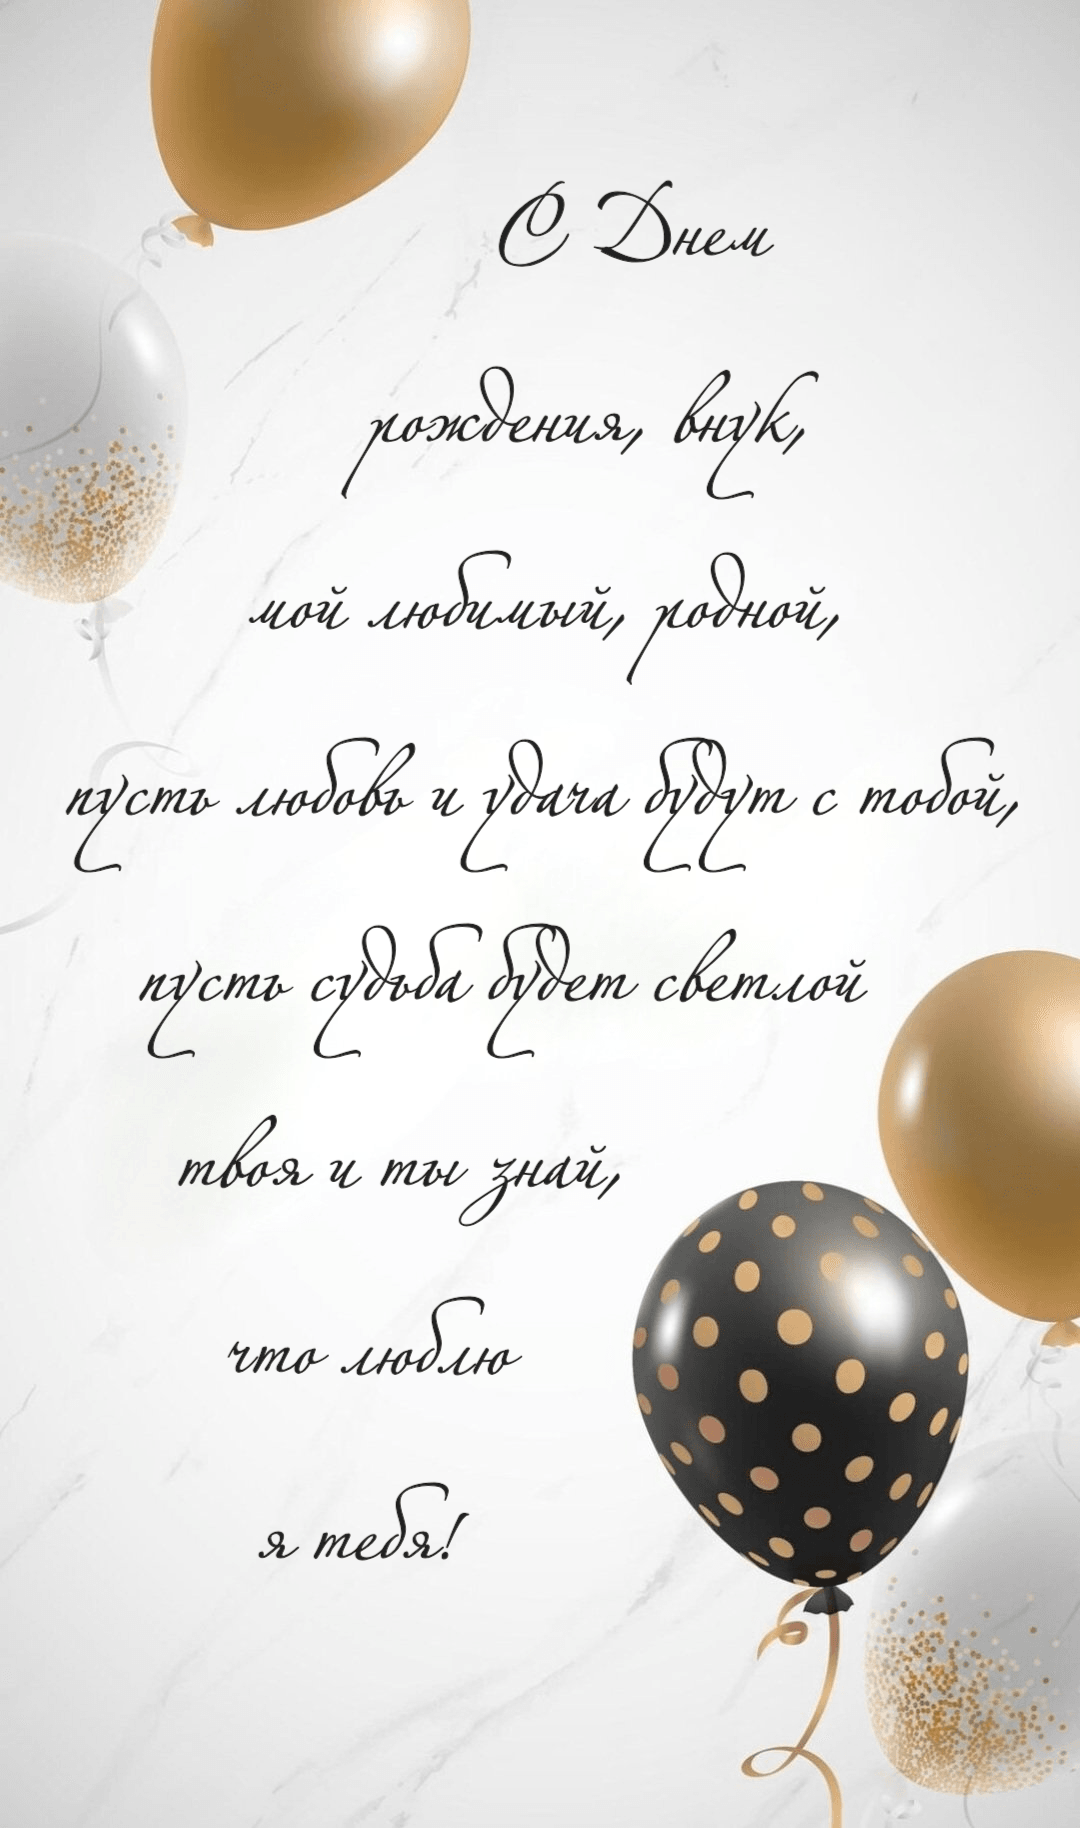 С Днем
рождения, внук,
мой любимый, родной,
пусть любовь и удача будут с тобой,
пусть судьба будет светлой
твоя и ты знай,
что люблю
я тебя!